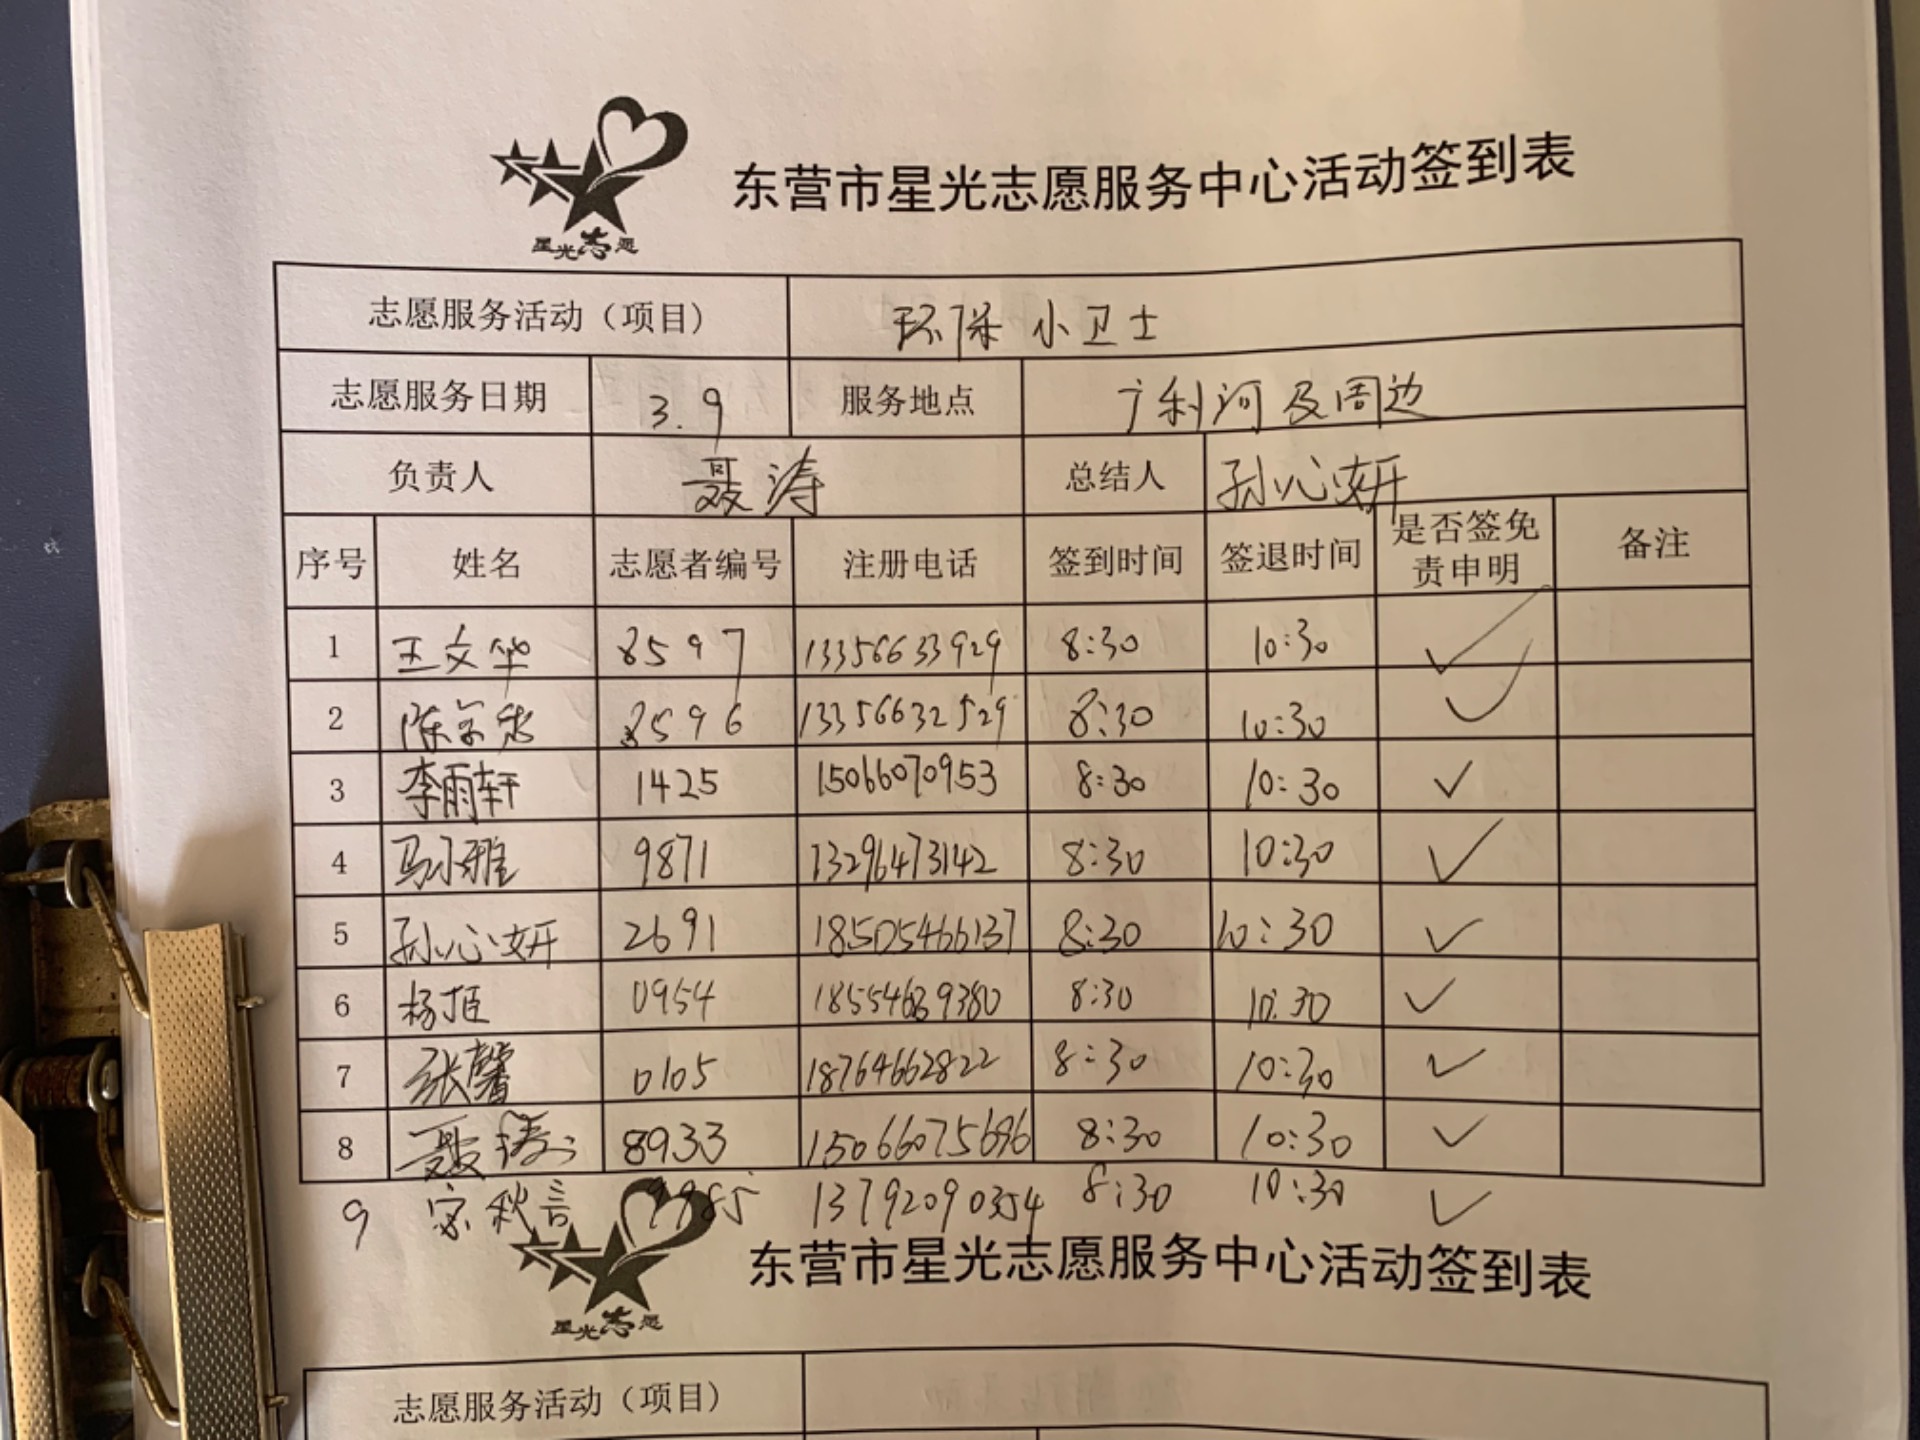 星光志愿
东营市星光志愿服务中心活动签到表
志愿服务活动（项目） 环保小卫士
志愿服务日期 3.9 服务地点 广利河及周边
负责人 聂涛 总结人 孙心妍
序号 姓名 志愿者编号 注册电话 签到时间 签退时间 是否签免责申明 备注
1 王文华 8597 13356633929 8:30 10:30 ✓
2 8596 13356632529 8:30 10:30 ✓
3 李雨轩 1425 15066070953 8:30 10:30 ✓
4 9871 13296473142 8:30 10:30 ✓
5 孙心妍 2691 18505466137 8:30 10:30 ✓
6 0954 8:30 10:30 ✓
7 张馨 0105 18764662822 8:30 10:30 ✓
8 聂涛 8933 15066075696 8:30 10:30 ✓
9 13792090354 8:30 10:30 ✓
星光志愿
东营市星光志愿服务中心活动签到表
志愿服务活动（项目）